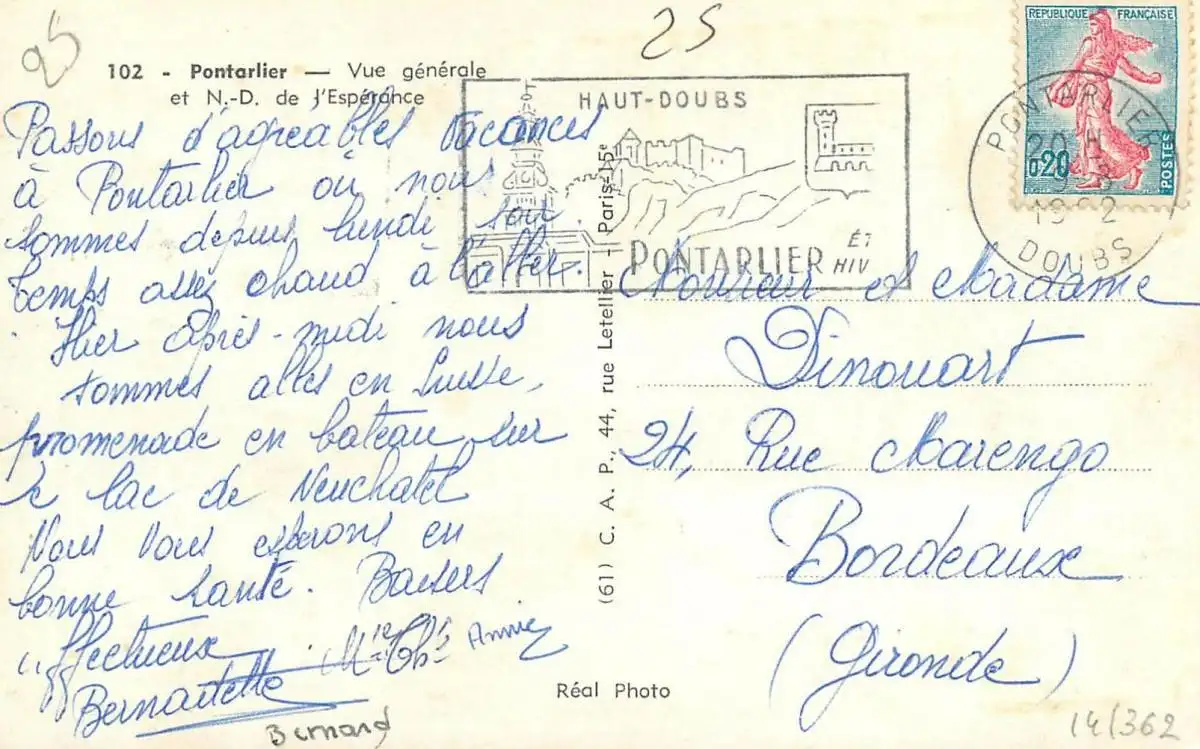 25
25
102 - Pontarlier — Vue générale
et N.-D. de l'Espérance
Passons d'agréables vacances
à Pontarlier où nous
sommes depuis lundi soir.
temps assez chaud à l'aller.
Hier après-midi nous
sommes allés en Suisse,
promenade en bateau sur
le lac de Neuchatel
Nous vous espérons en
bonne santé. Baisers
affectueux
Bernadette
Mie Th
Annie
Bernard
HAUT-DOUBS
PONTARLIER ÉT
HIV
REPUBLIQUE FRANÇAISE
0,20
POSTES
PONTARLIER
20 H
1962
DOUBS
Monsieur et Madame
Dinouart
24, Rue Marengo
Bordeaux
(Gironde)
(61) C. A. P., 44, rue Letellier - Paris-15e
Réal Photo
14/362